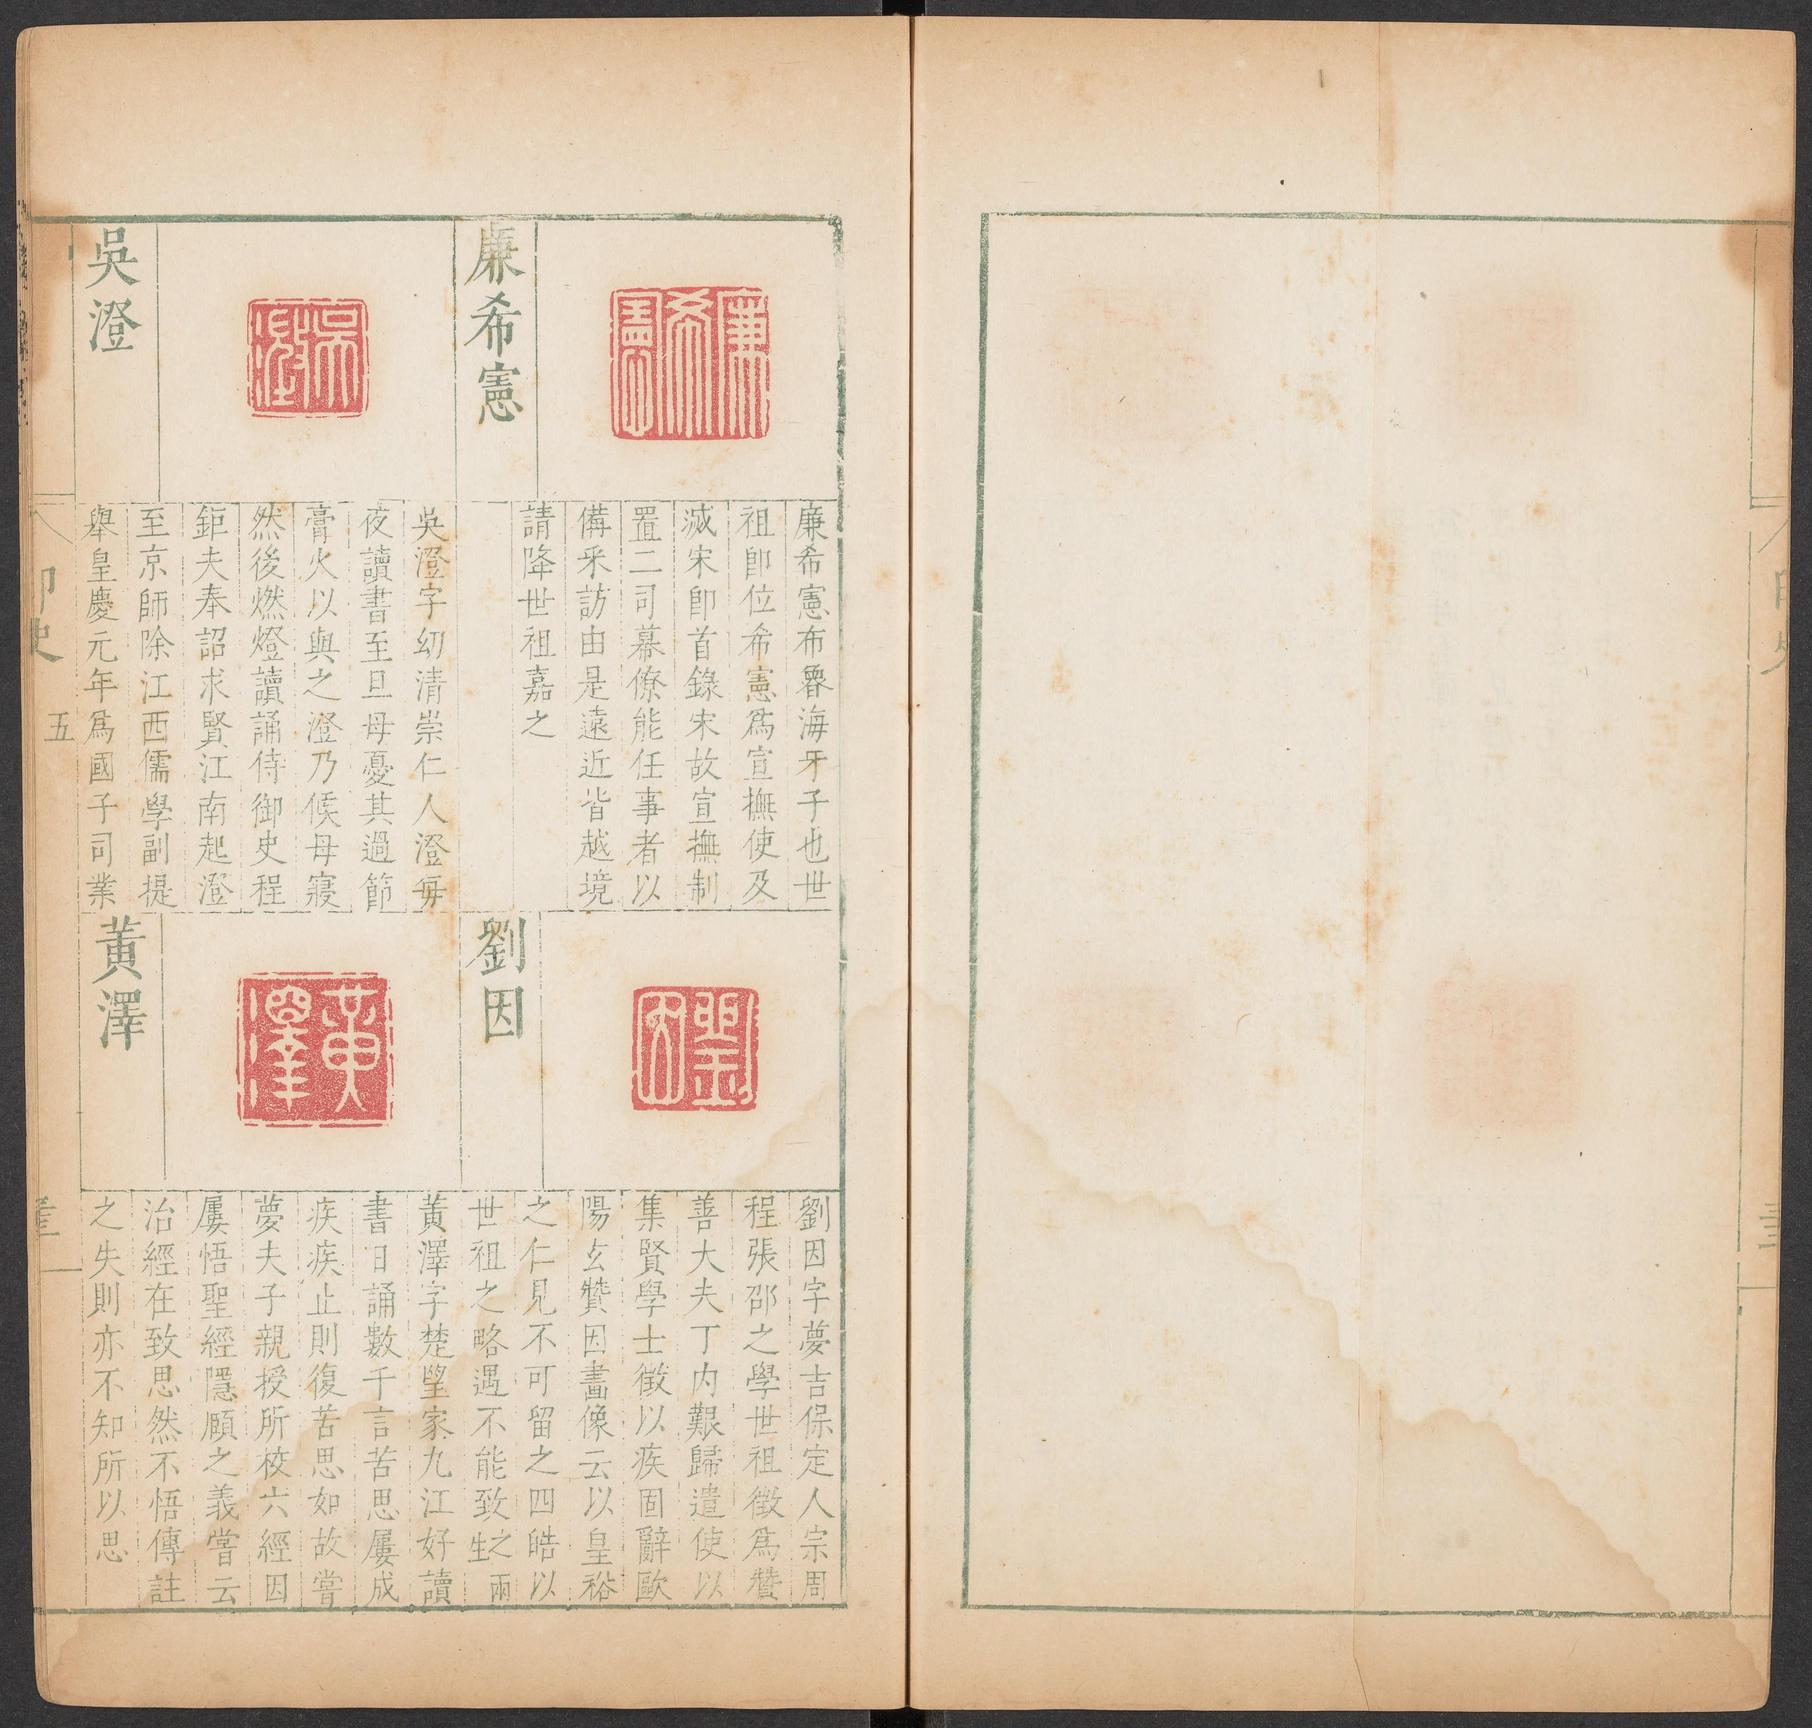 廉希憲
廉希憲布魯海牙子也世
祖即位希憲爲宣撫使及
滅宋即首錄宋故宣撫制
置二司幕僚能任事者以
備采訪由是遠近皆越境
請降世祖嘉之
吳澄
吳澄字幼清崇仁人澄每
夜讀書至旦母憂其過節
膏火以與之澄乃候母寢
然後燃燈讀誦侍御史程
鉅夫奉詔求賢江南起澄
至京師除江西儒學副提
舉皇慶元年爲國子司業
劉因
劉因字夢吉保定人宗周
程張邵之學世祖徵爲贊
善大夫丁內艱歸遣使以
集賢學士徵以疾固辭歐
陽玄贊因畫像云以皇裕
之仁見不可留之四皓以
世祖之略遇不能致之兩
生
黃澤
黃澤字楚望家九江好讀
書日誦數千言苦思屢成
疾疾止則復苦思如故嘗
夢夫子親授所校六經因
屢悟聖經隱願之義嘗云
治經在致思然不悟傳註
之失則亦不知所以思
印史
五
廉希憲
吳澄
劉因
黃澤